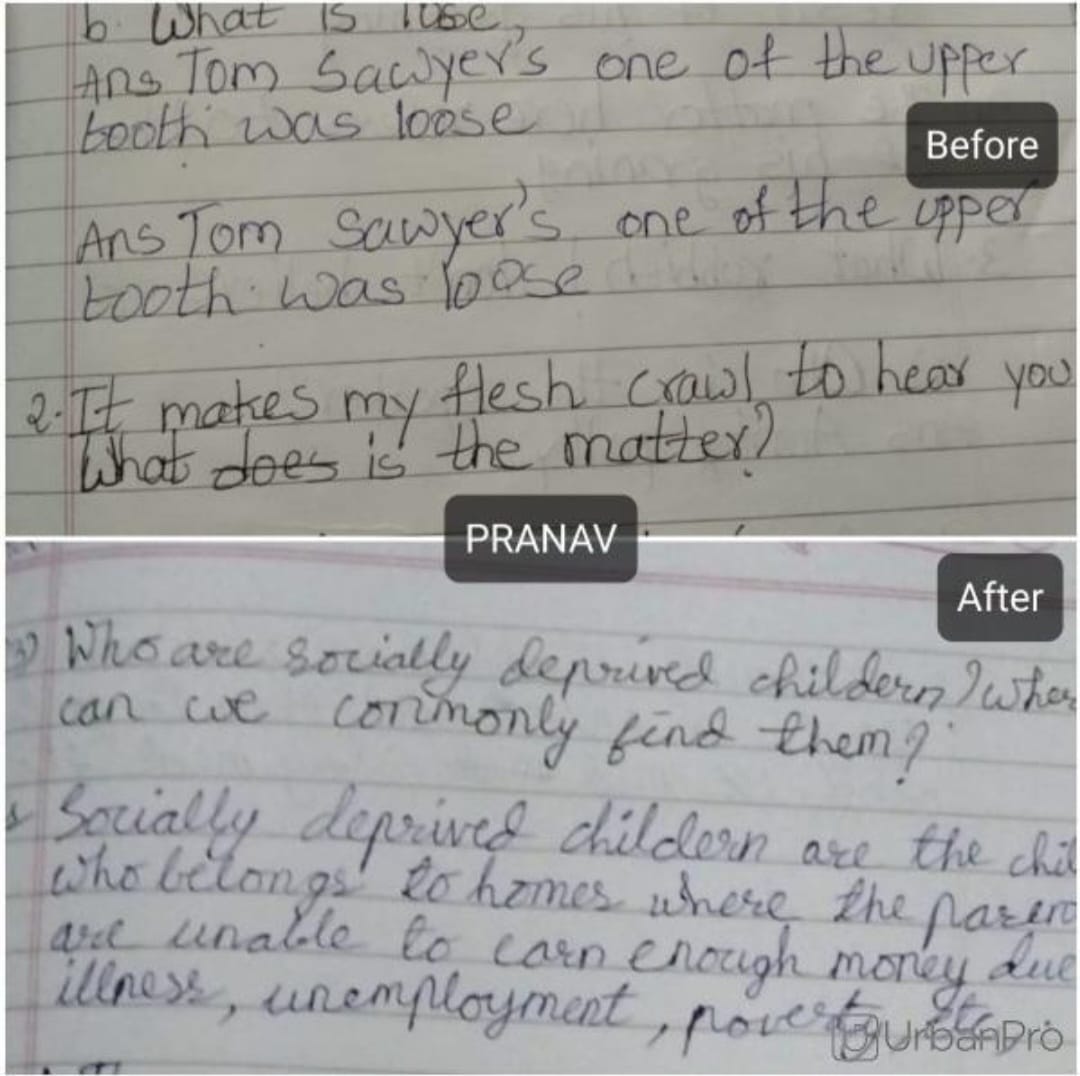 b. What is lose,
Ans Tom Sawyer's one of the upper
tooth was loose
Before
Ans Tom Sawyer's one of the upper
tooth. was loose
2. It makes my flesh crawl to hear you
What does is the matter?
PRANAV
After
Who are socially deprived childern? wher
can we commonly find them?
Socially deprived childern are the chil
who belongs to homes where the paren
are unable to earn enough money due
illness, unemployment, poverty etc.
UrbanPro